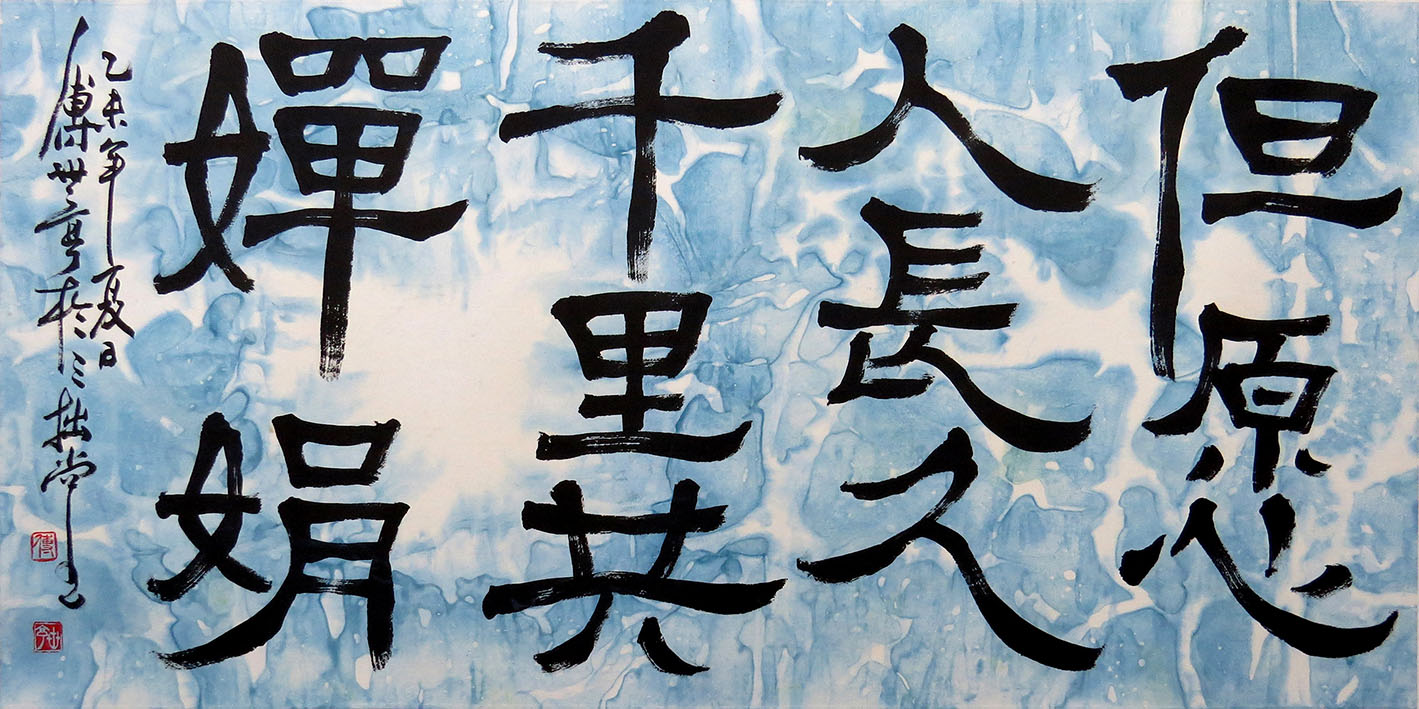 但愿
人長久
千里共
嬋娟
乙未年夏日
傅世於三拙堂
傅